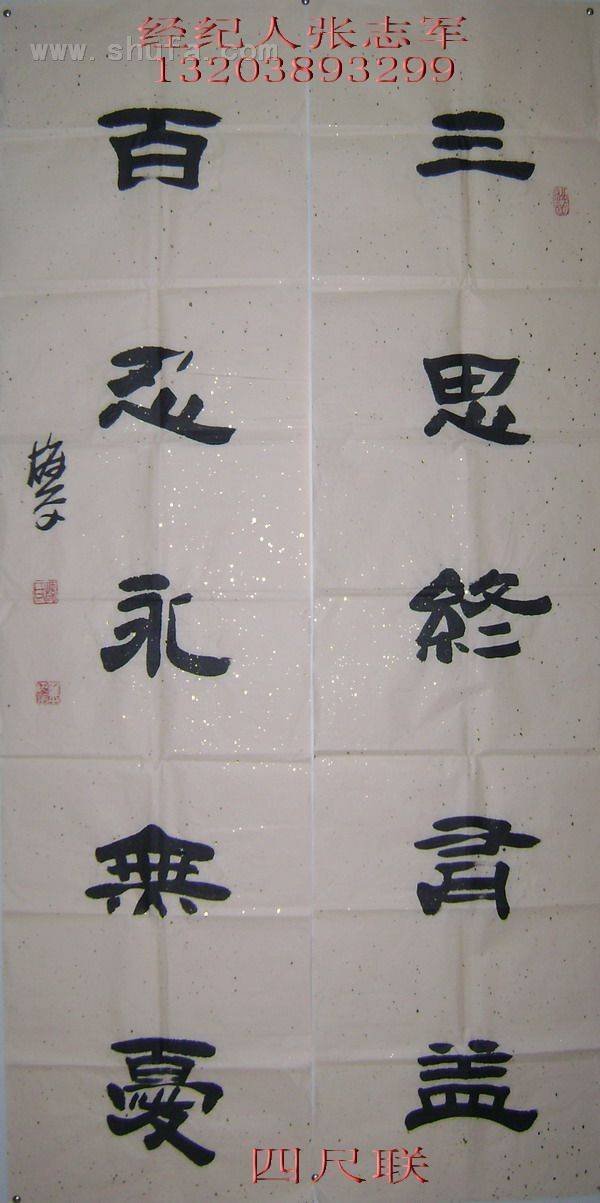 经纪人张志军
13203893299
www.shufa.com
三思終有益
百忍永無憂
四尺联